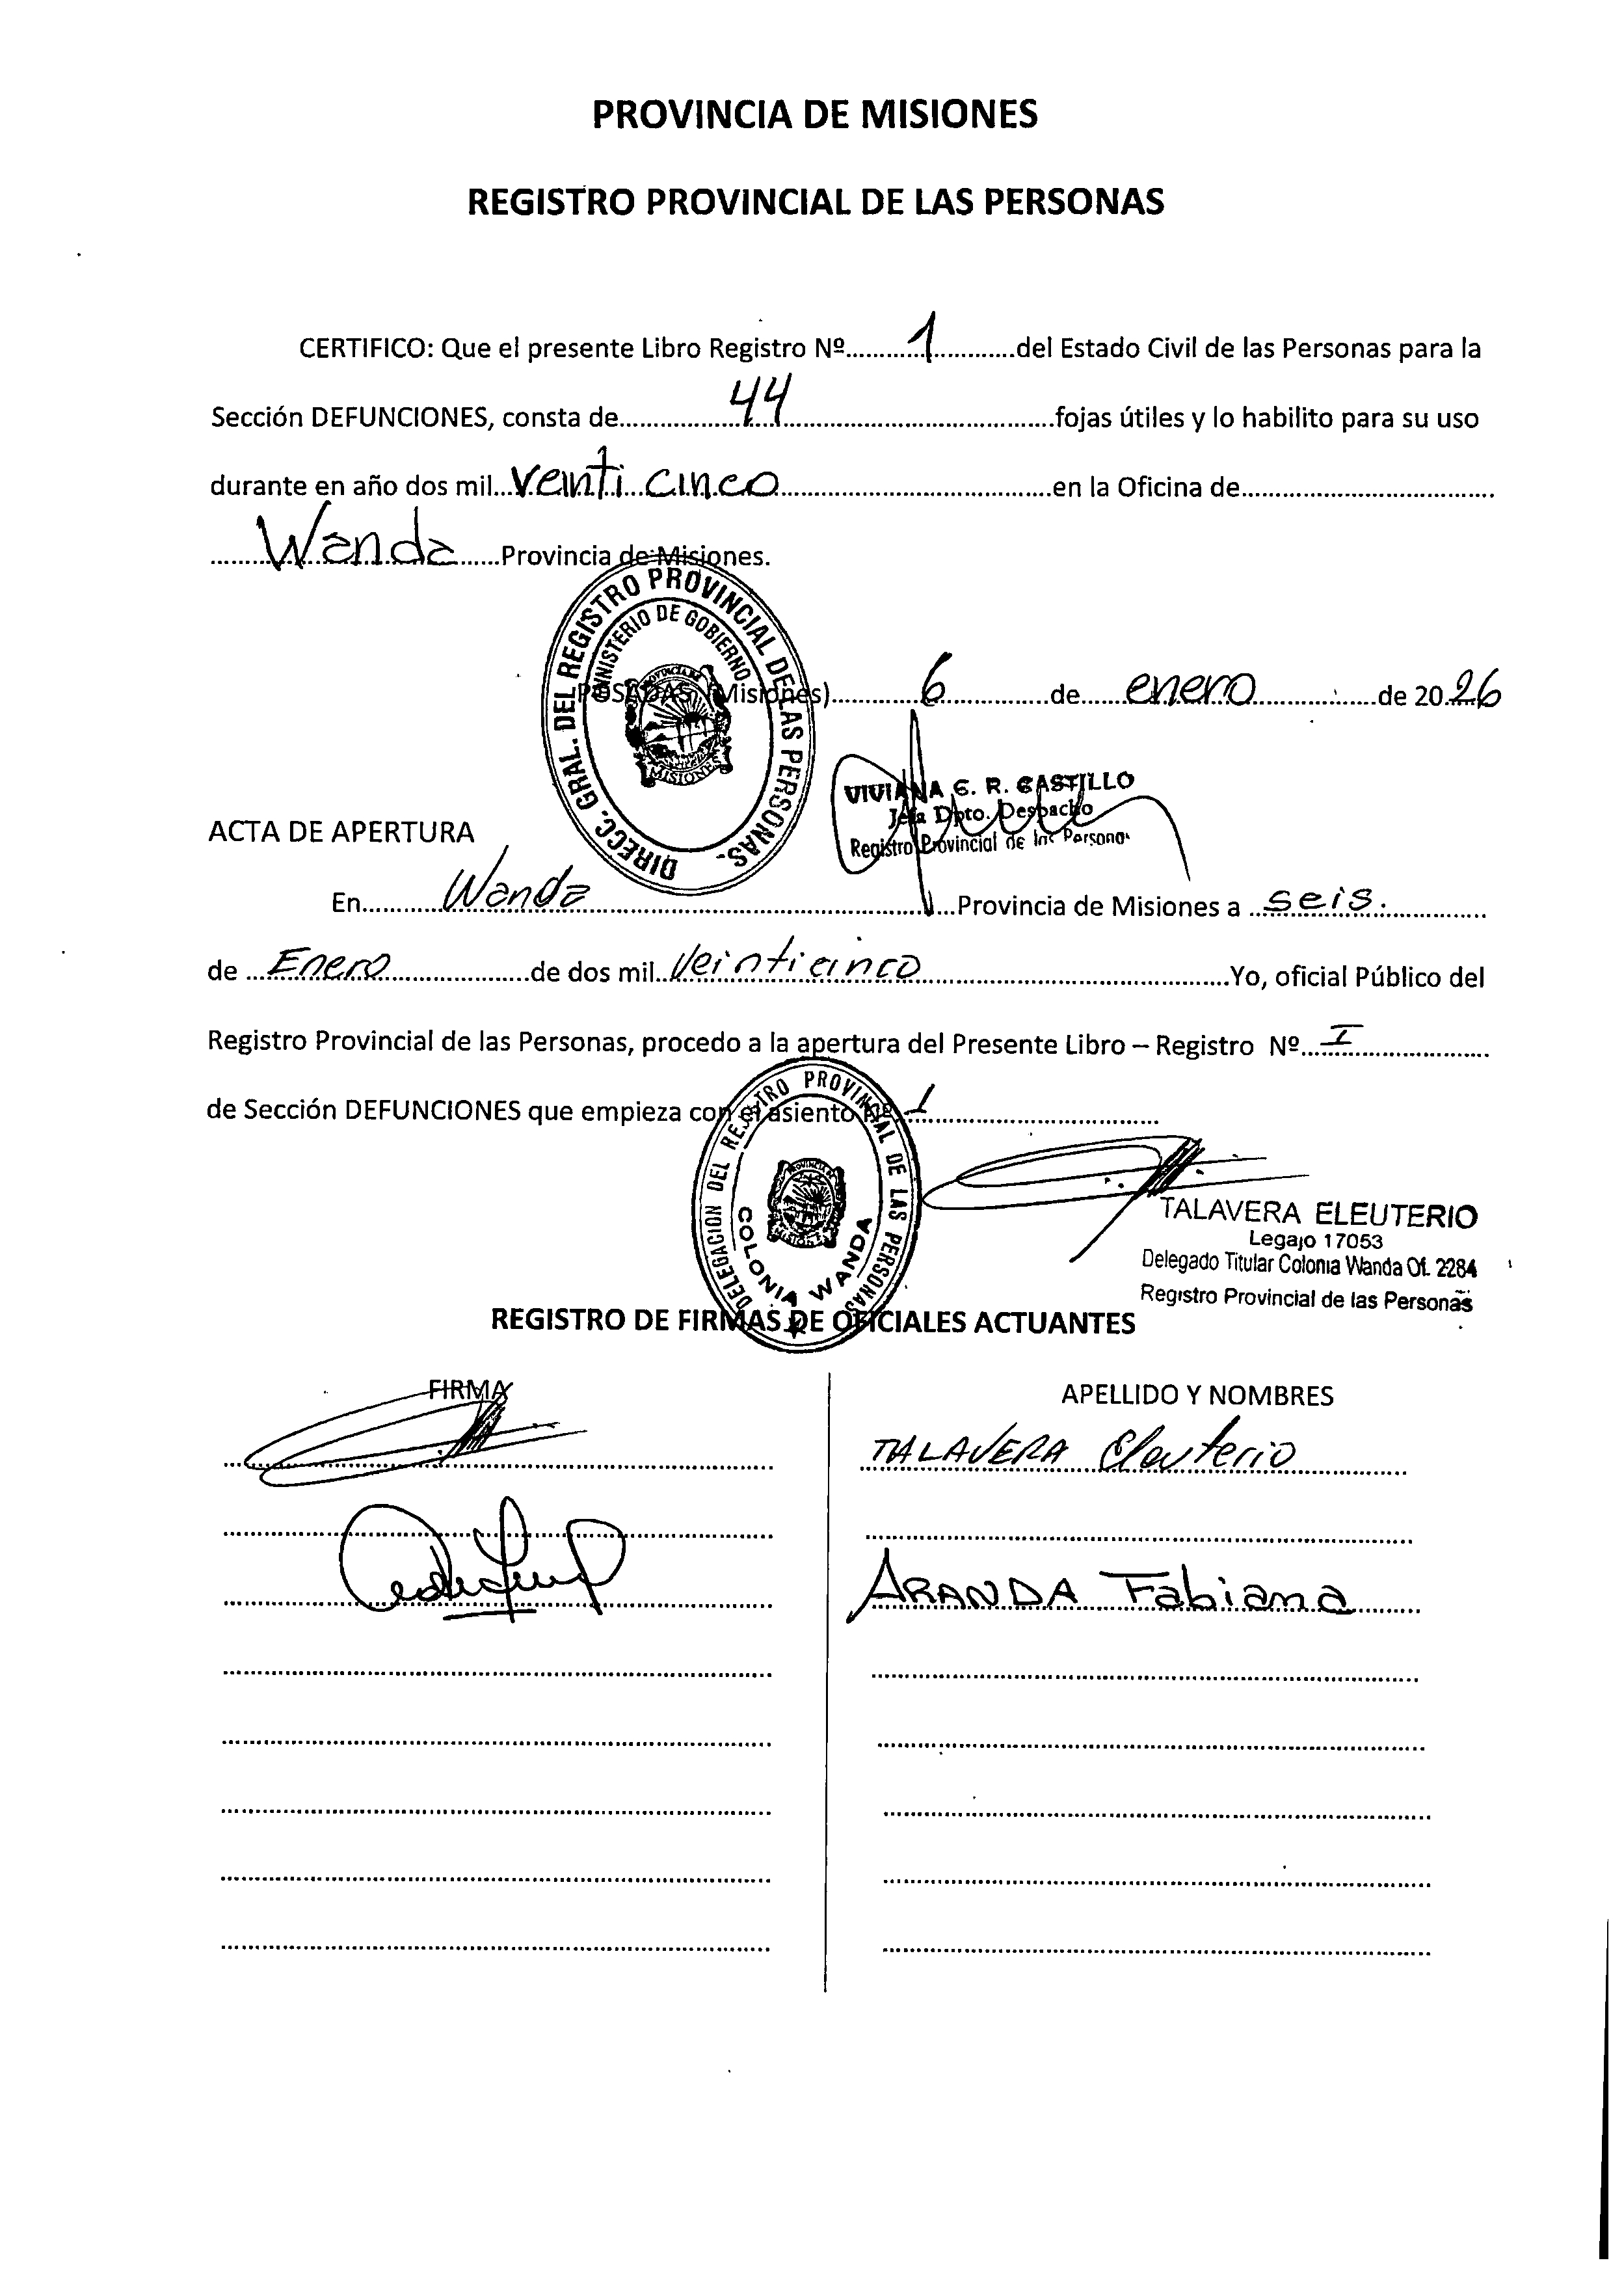 PROVINCIA DE MISIONES
REGISTRO PROVINCIAL DE LAS PERSONAS
CERTIFICO: Que el presente Libro Registro Nº 1 del Estado Civil de las Personas para la
Sección DEFUNCIONES, consta de 44 fojas útiles y lo habilito para su uso
durante en año dos mil veinti cinco en la Oficina de
Wanda Provincia de Misiones.
DIRECC. GRAL. DEL REGISTRO PROVINCIAL DE LAS PERSONAS.
MINISTERIO DE GOBIERNO
PROVINCIA DE
MISIONES
POSADAS, (Misiones) 6 de enero de 2026
VIVIANA C. R. CASTILLO
Jefa Dpto. Despacho
Registro Provincial de las Personas
ACTA DE APERTURA
En Wanda Provincia de Misiones a seis.
de Enero de dos mil Veinticinco Yo, oficial Público del
Registro Provincial de las Personas, procedo a la apertura del Presente Libro – Registro Nº I
de Sección DEFUNCIONES que empieza con el asiento Nº 1
DELEGACION DEL REGISTRO PROVINCIAL DE LAS PERSONAS
COLONIA WANDA
TALAVERA ELEUTERIO
Legajo 17053
Delegado Titular Colonia Wanda Of. 2284
Registro Provincial de las Personas
REGISTRO DE FIRMAS DE OFICIALES ACTUANTES
FIRMA
APELLIDO Y NOMBRES
TALAVERA Eleuterio
ARANDA Fabiana